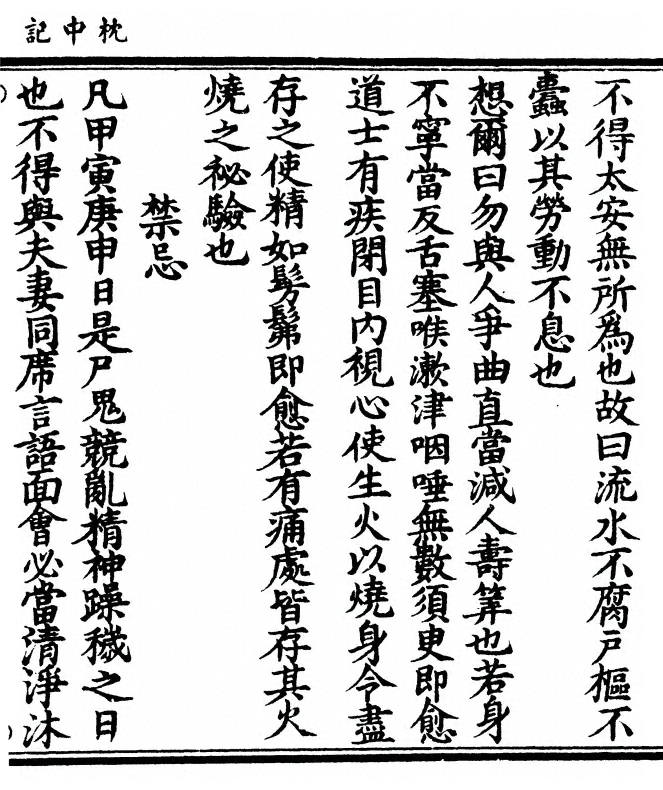 枕中記
不得太安無所為也故曰流水不腐戶樞不
蠹以其勞動不息也
想爾曰勿與人爭曲直當減人壽筭也若身
不寧當反舌塞喉漱津咽唾無數須臾即愈
道士有疾閉目內視心使生火以燒身令盡
存之使精如髣髴即愈若有痛處皆存其火
燒之秘驗也
禁忌
凡甲寅庚申日是尸鬼競亂精神躁穢之日
也不得與夫妻同席言語面會必當清淨沐